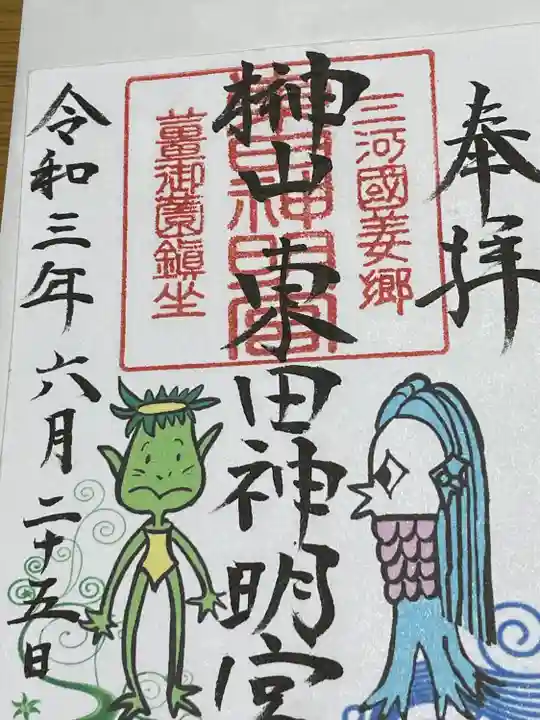 奉拝
三河國姜郷
榊山東田神明宮
薑御薗鎮坐
令和三年六月二十五日